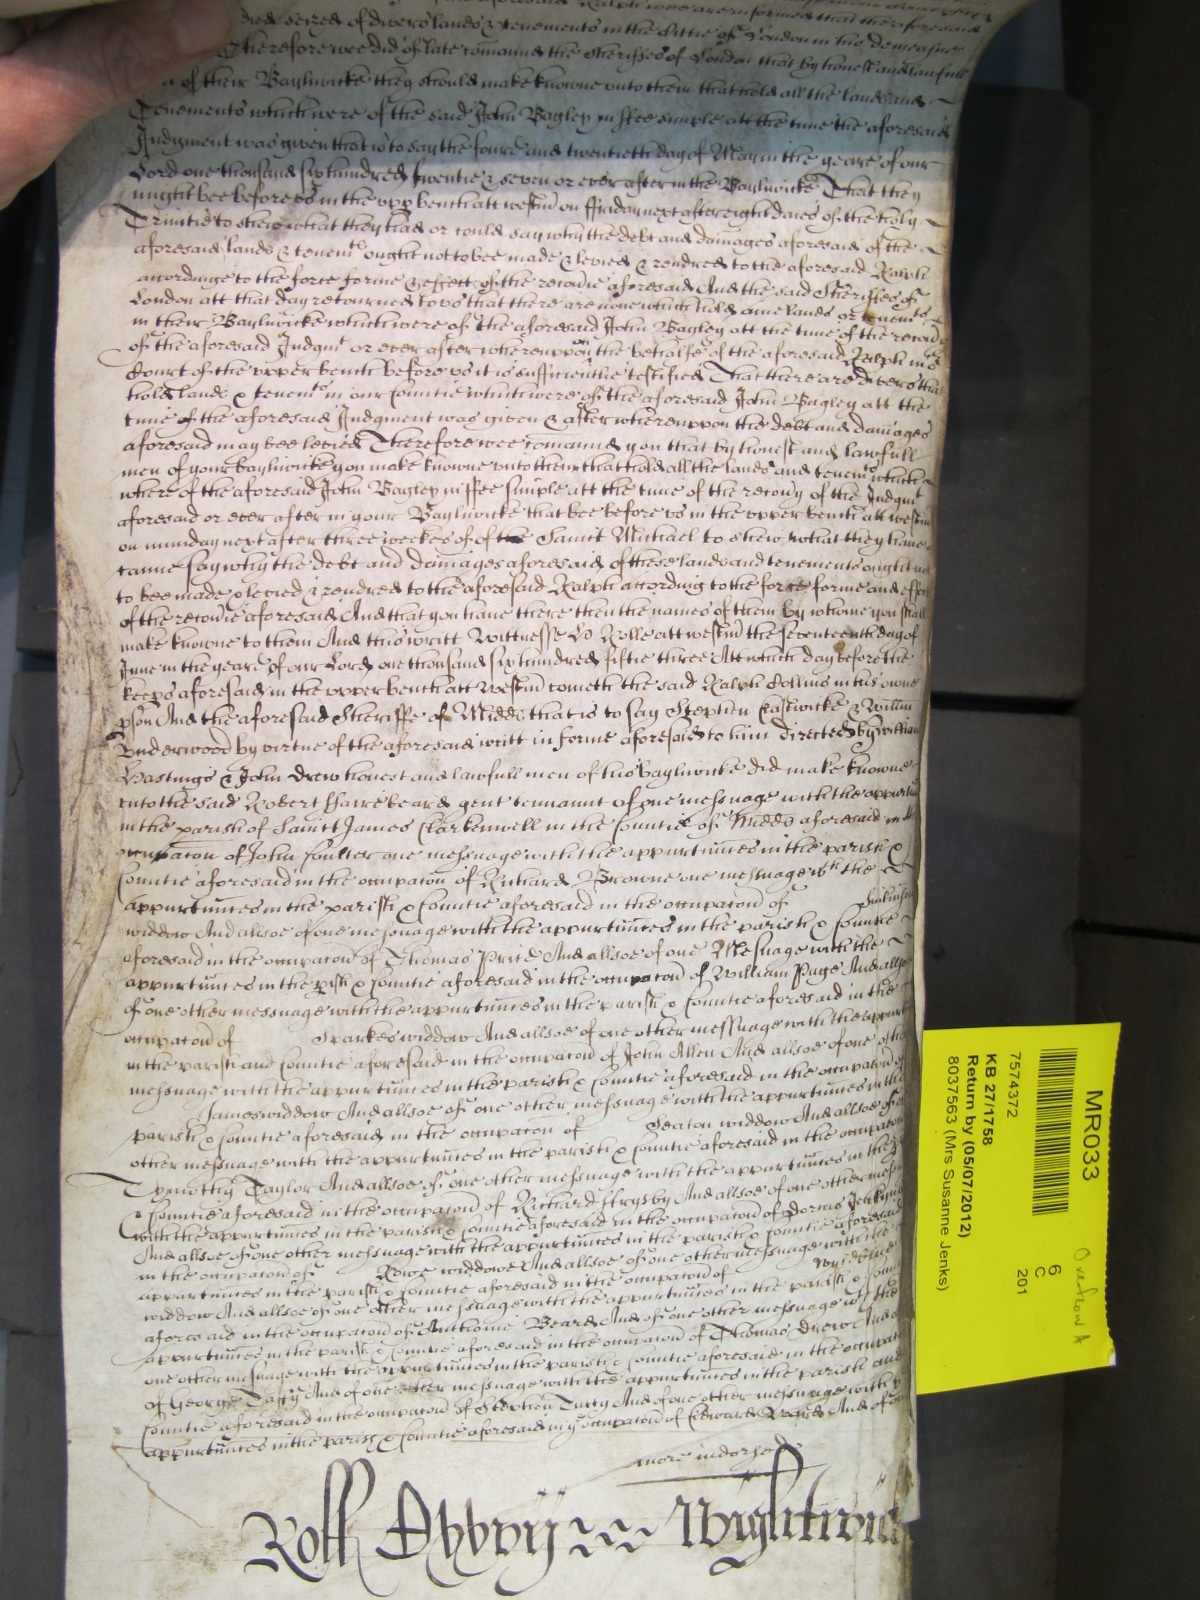 died seized of divers lands & tenements in the Cittie of London in his demeasne
Therefore wee did of late comaund the Sheriffes of London that by honest and lawfull
of their Bayliwicke they should make knowne unto them that hold all the lands and
Tenements which were of the said John Bagley in ffee simple att the time the aforesaid
Judgment was given that is to say the foure and twentieth day of May in the yeare of our
Lord one thousand six hundred twentie & seven or ever after in the Bayliwicke That they
might bee before us in the upp bench att westm on ffriday next after eight daies of the holy
Trinitie to shew what they had or could say why the debt and damages aforesaid of the
aforesaid lands & tenemts ought not to bee made & levied & rendred to the aforesaid Ralph
accordinge to the force forme & effect of the recovie aforesaid And the said Sheriffes of
London att that day retourned to us that there are none which hold anie lands or tenemts
in their Bayliwicke which were of the aforesaid John Bagley att the time of the
of the aforesaid Judgmt or ever after whereuppon the behalfe of the aforesaid Ralph in
Court of the upper bench before us it is sufficientlie testified That there are divers that
hold lands & tenemts in our Countie which were of the aforesaid John Bagley att the
time of the aforesaid Judgment was given & after whereuppon the debt and damages
aforesaid may bee levied Therefore wee comaund you that by honest and lawfull
men of your bayliwicke you make knowne unto them that hold all the lands and tenemts which
where of the aforesaid John Bagley in ffee simple att the time of the recovy of the Judgmt
aforesaid or ever after in your Bayliwicke that bee before us in the upper bench att westm
on munday next after three weekes of of the Saint Michael to shew what they have
canne say why the debt and damages aforesaid of these lands and tenements ought not
to bee made & levied & rendred to the aforesaid Ralph according to the force forme and effect
of the recovie aforesaid And that you have there then the names of them by whome you shall
make knowne to them And this writt Wittnesse H Rolle att westm the seventeenth day of
June in the yeare of our Lord one thousand six hundred fiftie three Att which day before the
keeps aforesaid in the upper bench att Westm cometh the said Ralph Collins in his owne
pson And the aforesaid Sheriffe of Midds that is to say Stephen Eastwicke & Willm
Underwood by virtue of the aforesaid writt in forme aforesaid to him directed by William
Hastings & John Drew honest and lawfull men of his bayliwicke did make knowne
unto the said Robert ffairebeard gent tennant of one messuage with the appurt
in the parish of Saint James Clarkenwell in the Countie of Midds aforesaid in the
occupacon of John Coulter one messuage with the appurtunces in the parish &
Countie aforesaid in the occupacon of Richard Browne one messuage wth the
appurtunces in the parish & Countie aforesaid in the occupacon of Jenkinson
widdow And allsoe of one messuage with the appurtunces in the parish & Countie
aforesaid in the occupacon of Thomas Price And allsoe of one Messuage with the
appurtunces in the pish & Countie aforesaid in the occupacon of William Page And allsoe
of one other messuage with the appurtunces in the parish & Countie aforesaid in the
occupacon of Sparkes widdow And allsoe of one other messuage with the appurt
in the parish and Countie aforesaid in the occupacon of John Allen And allsoe of one other
messuage with the appurtunces in the parish & Countie aforesaid in the occupacon of
James widdow And allsoe of one other messuage with the appurtunces in the
parish & Countie aforesaid in the occupacon of Seaton widdow And allsoe of
other messuage with the appurtunces in the parish & Countie aforesaid in the occupacon
Tymothy Taylor And allsoe of one other messuage with the appurtunces in the
& Countie aforesaid in the occupacon of Richard ffrysby And allsoe of one other
with the appurtunces in the parish & Countie aforesaid in the occupacon of
And allsoe of one other messuage with the appurtunces in the parish & Countie aforesaid
in the occupacon of Rowe widdowe And allsoe of one other messuage with the
appurtunces in the parish & Countie aforesaid in the occupacon of
widdow And allsoe of one other messuage with the appurtunces in the parish &
aforesaid in the occupacon of Anthonie Beard And of one other messuage wth the
appurtunces in the parish & Countie aforesaid in the occupacon of Thomas Drew And
one other messuage with the appurtunces in the parish & Countie aforesaid in the
of George Taffy And of one other messuage with the appurtunces in the parish and
Countie aforesaid in the occupacon of Stephen And of one other messuage with
appurtunces in the parish & Countie aforesaid in occupacon of Edward And of
more indorsed
Roll
MR033
7574372
KB 27/1758
Return by (05/07/2012)
8037563 (Mrs Susanne Jenks)
6
C
201